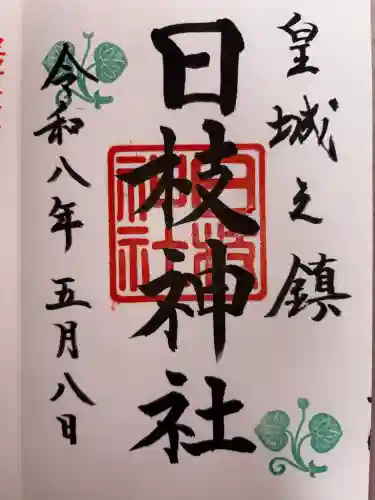 皇城之鎮
日枝神社
日枝神社
令和八年五月八日